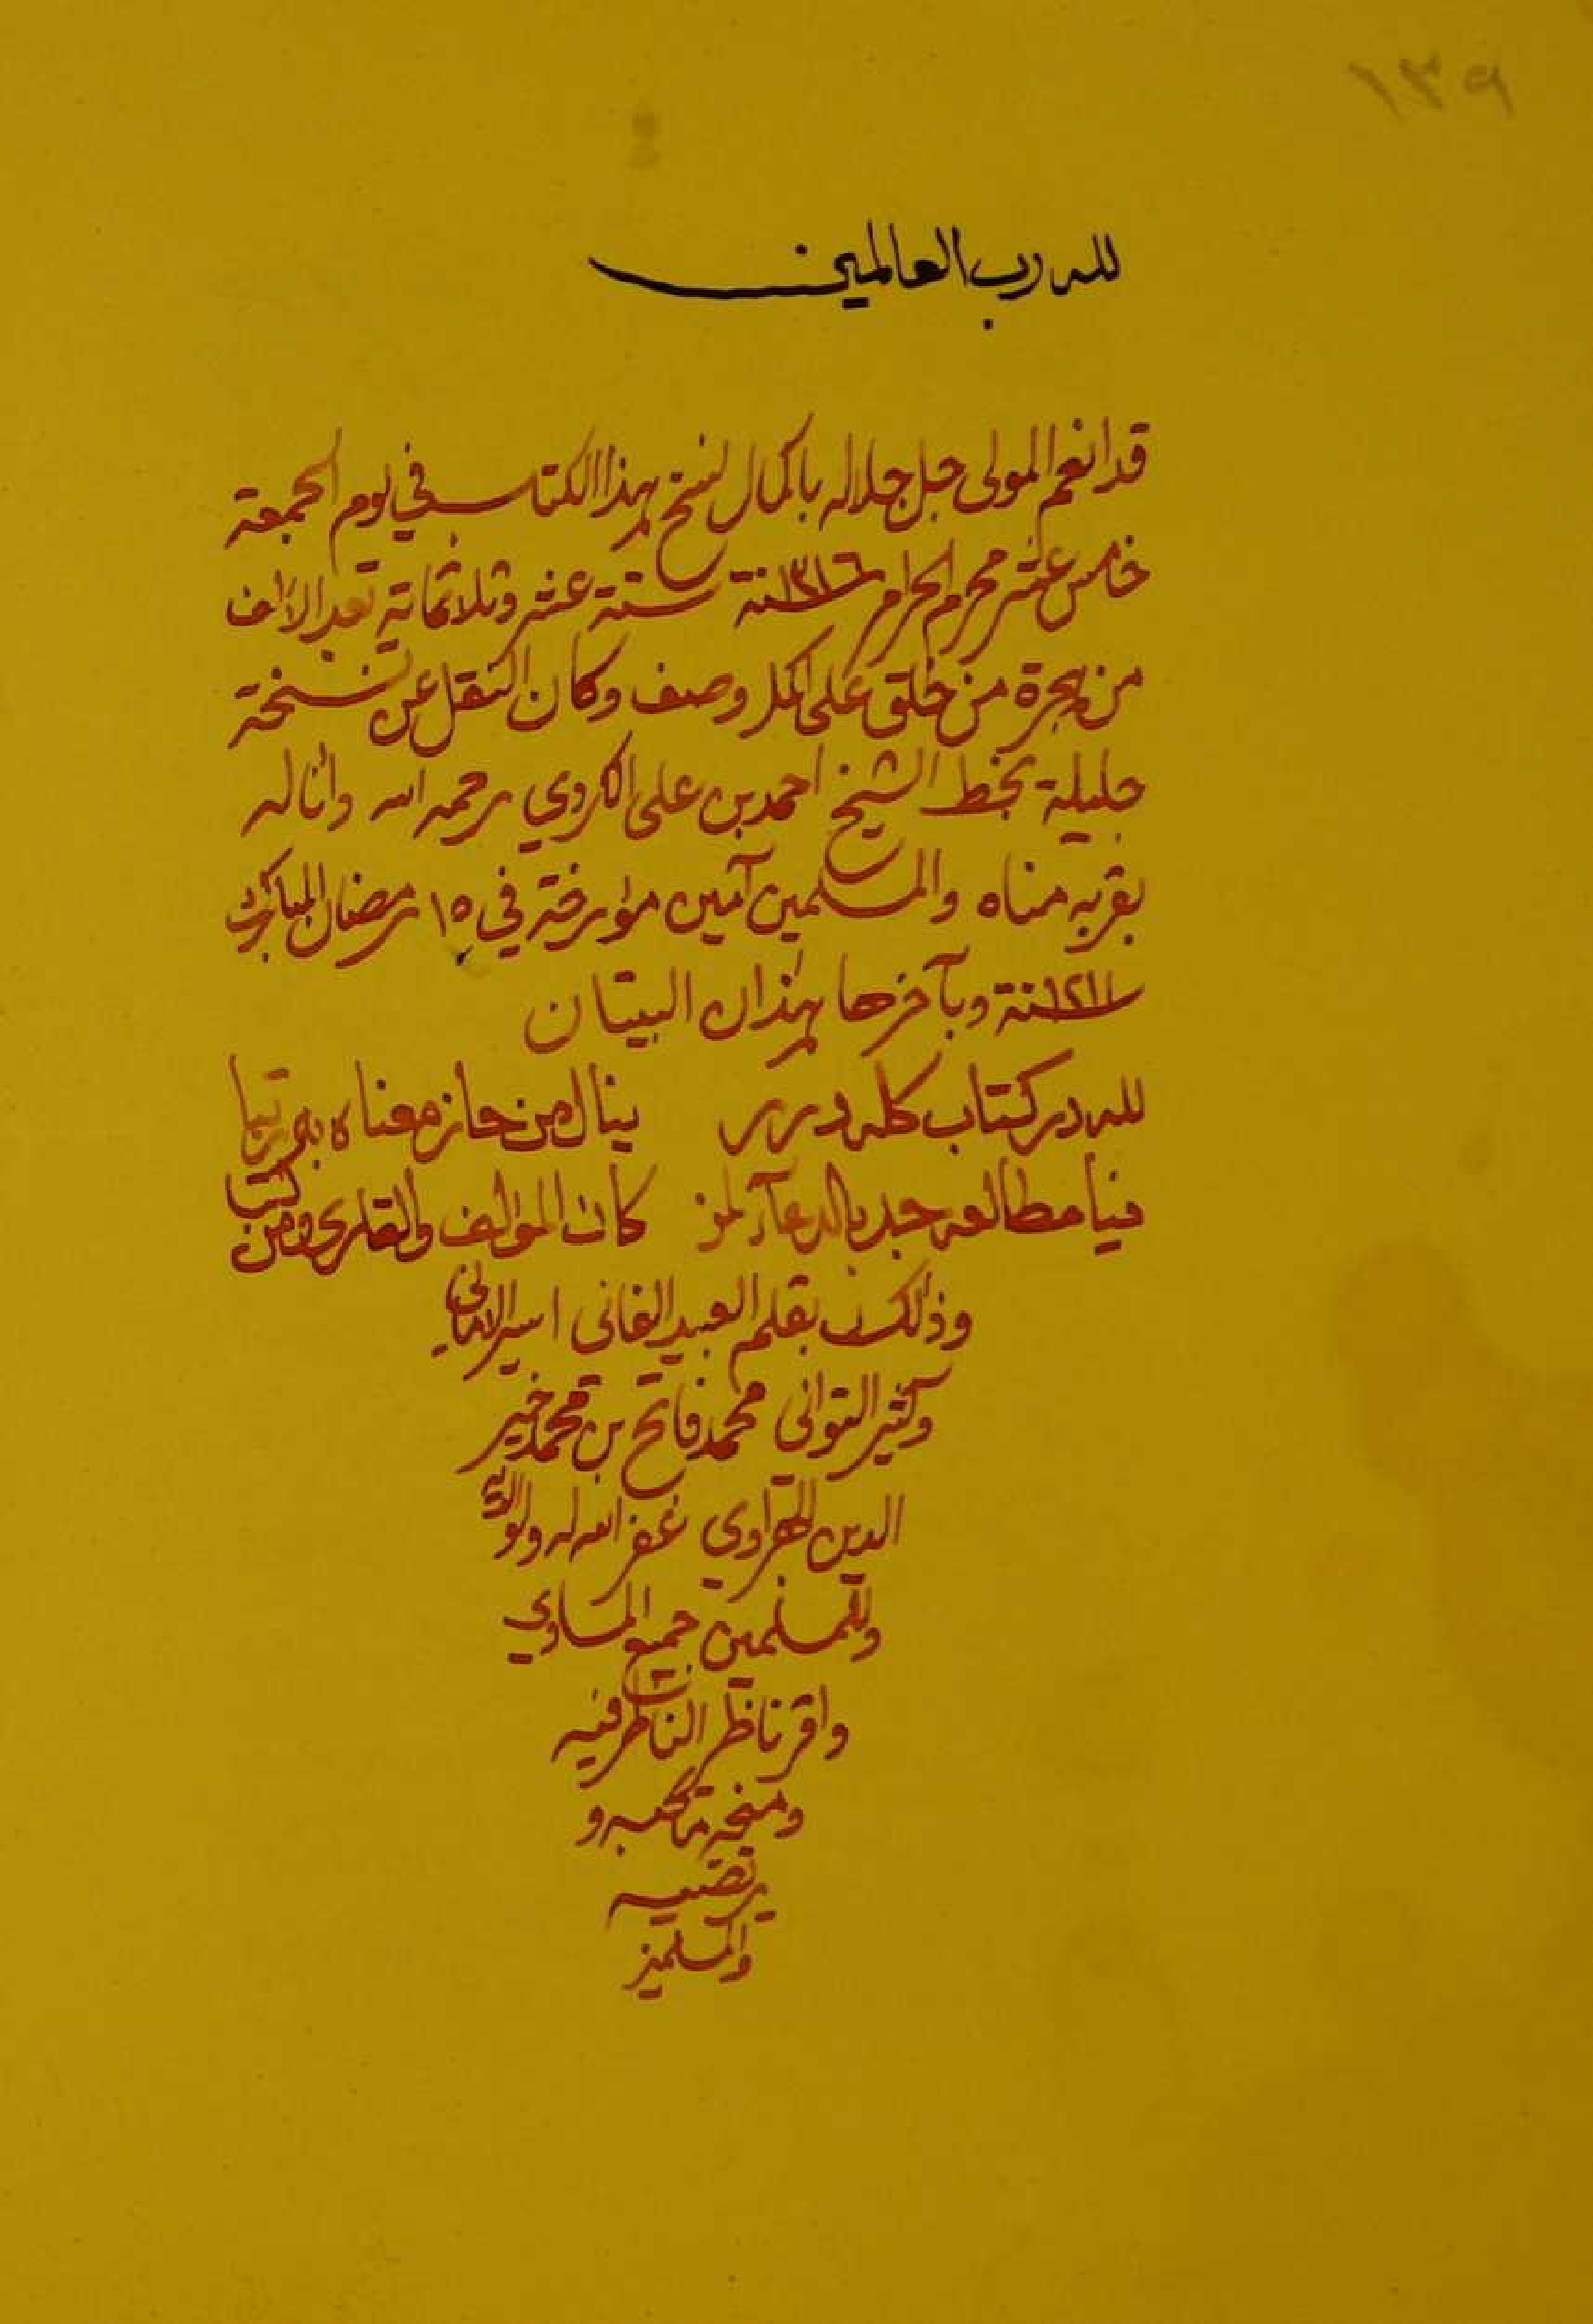 ١٣٩
لله رب العالمين
قد انعم المولى جل جلاله باكمال نسخ هذا الكتاب في يوم الجمعة
خامس عشر محرم الحرام ١٣١٦ سنة ستة عشر وثلاثمائة بعد الالف
من هجرة من خلق على اكمل وصف وكان النقل عن نسخة
جليلة بخط الشيخ احمد بن على الكردي رحمه الله وأناله
بقربه مناه والمسلمين آمين مؤرخة في ١٥ رمضان المبارك
سنة ١٢١١ وبآخرها هذان البيتان
لله در كتاب كله درر ينال من حاز معناه به رتبا
فيا مطالعه جد بالدعآء لمن كان المؤلف والقارى ومن كتبا
وذلك بقلم العبد الفانى اسير الامانى
وكثير التوانى محمد فاتح بن محمد خير
الدين الهراوي غفر الله له ولوالديه
وللمسلمين جميع المساوي
واقر ناظر الناظر فيه
ومنحه ما يحبه و
يرتضيه
والمسلمين